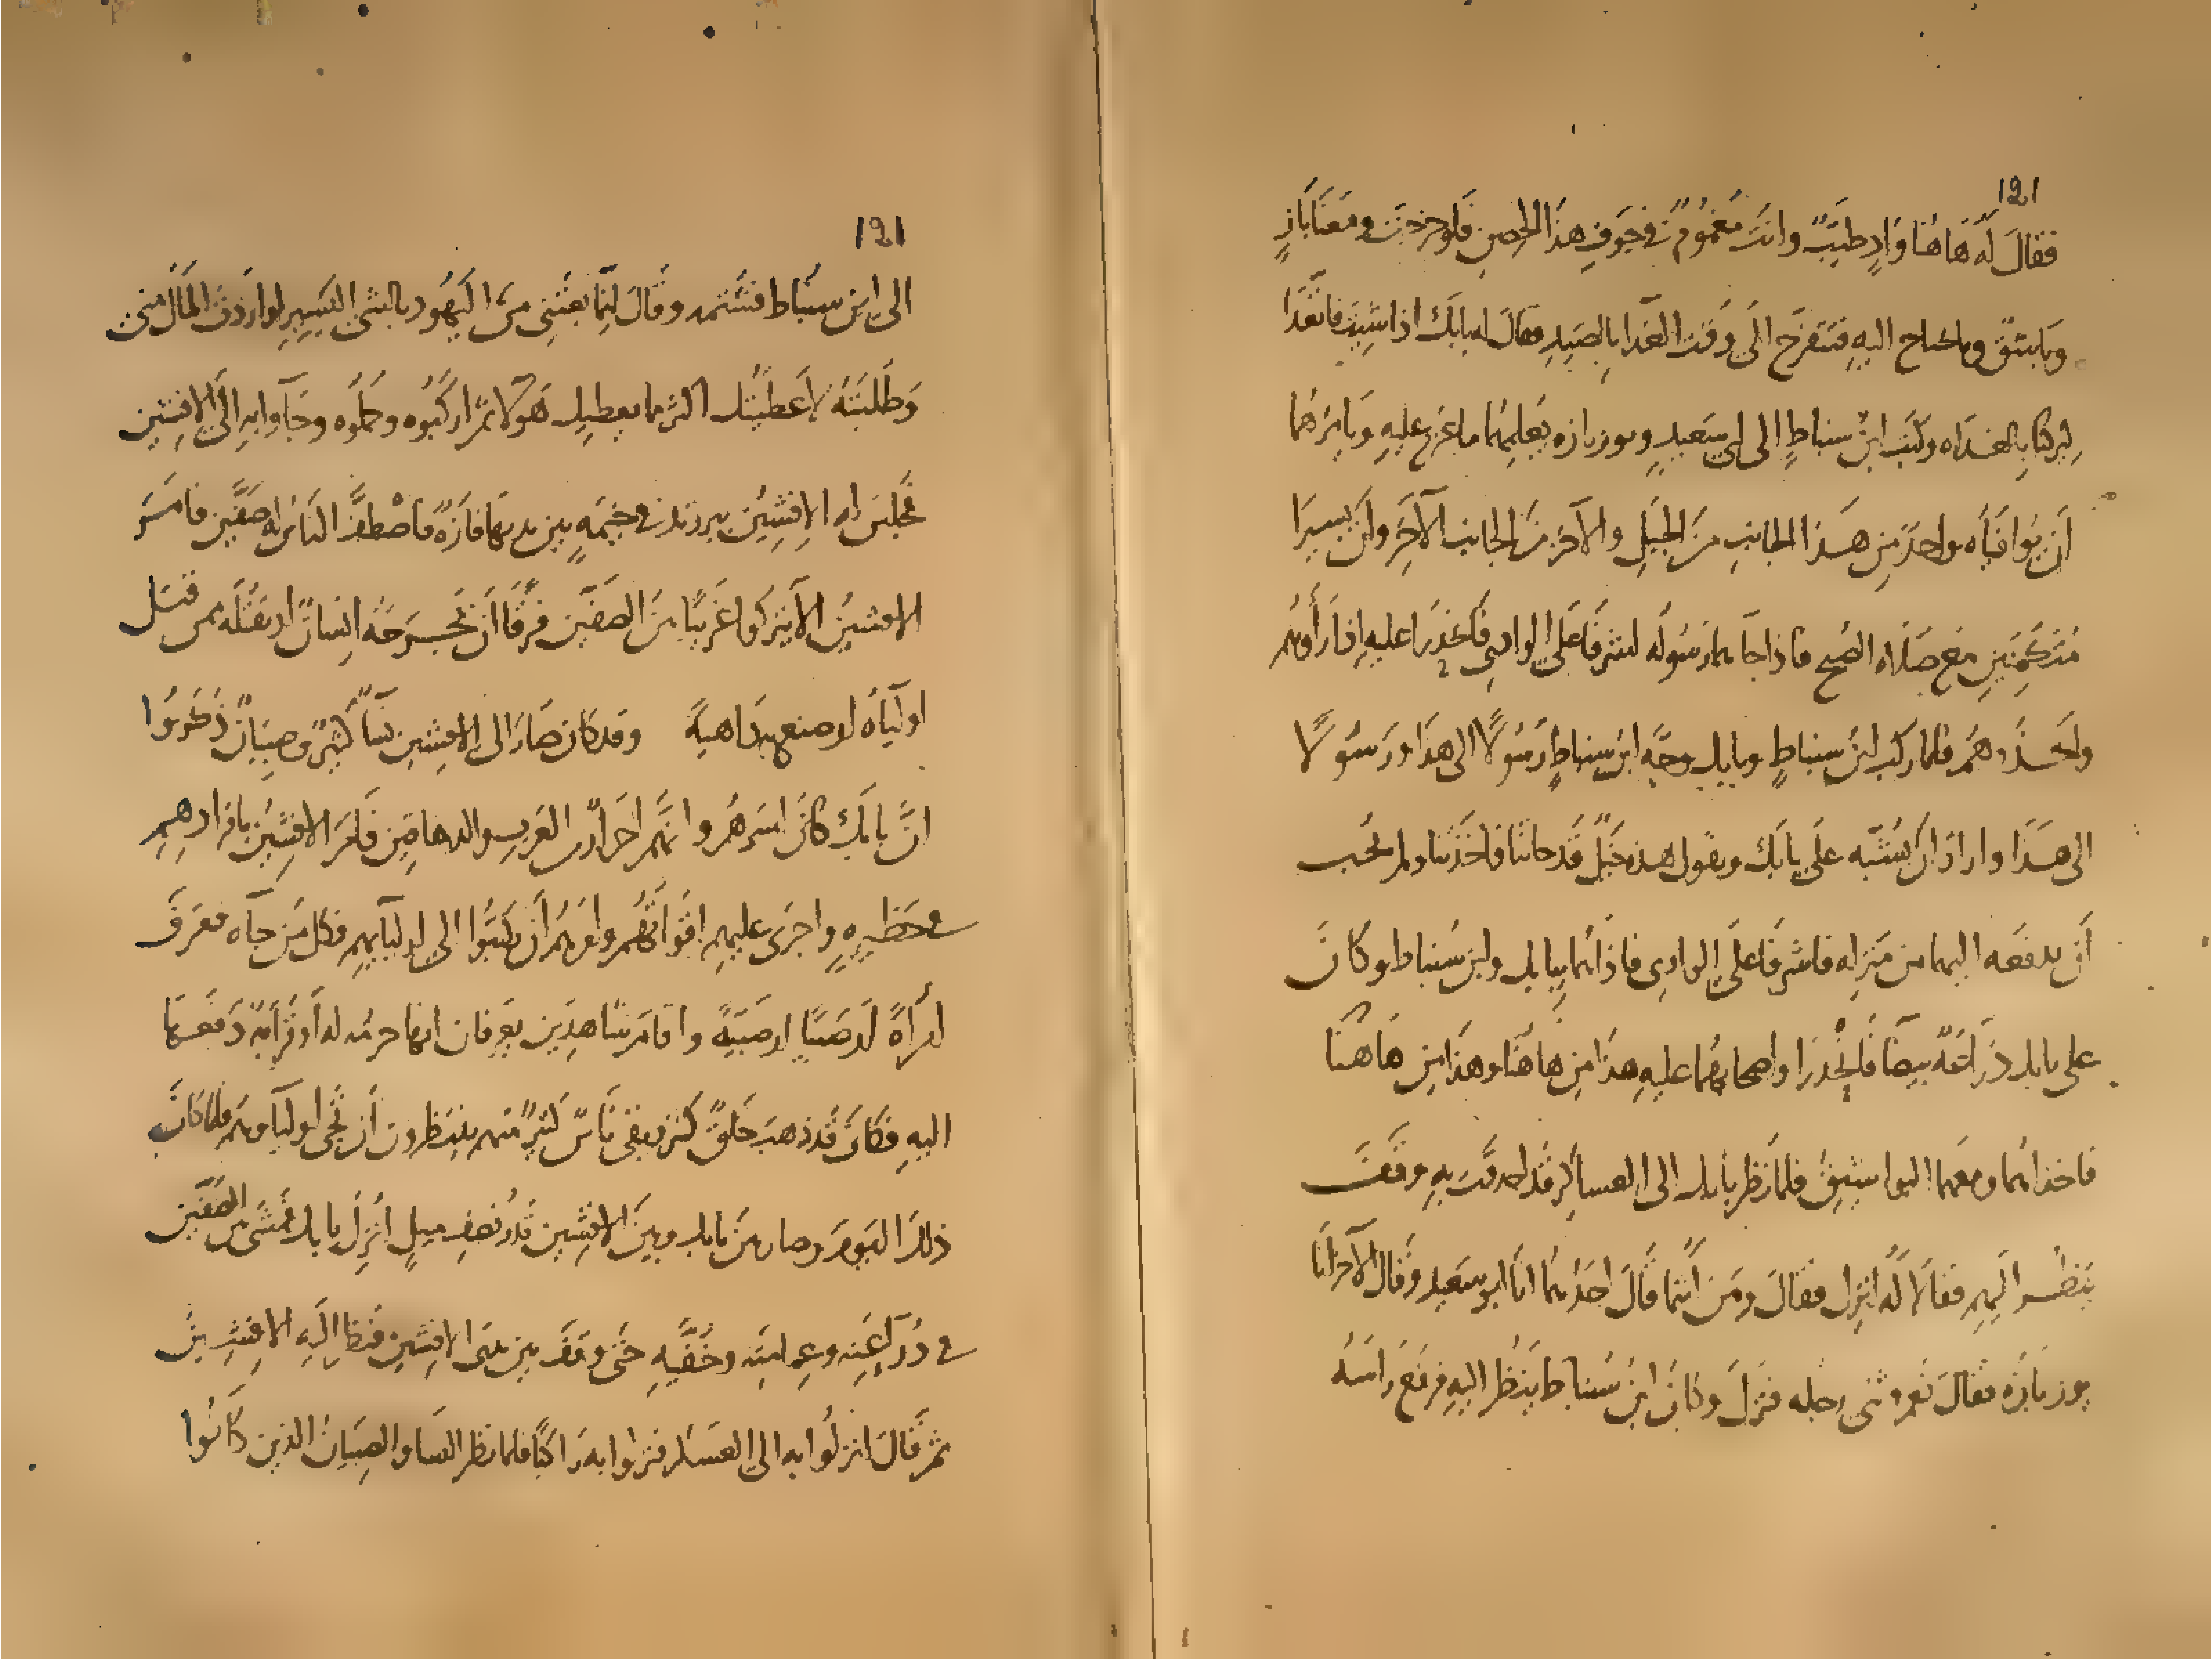 ١٩١
فقال له هاهنا واد طيب وانت مغموم في جوف هذا الحصن فلو خرجت ومعنا باز
وباشق وما يحتاج اليه فنتفرج الى وقت الغدا بالصيد فقال له بابك اذا شيت فانفذا
ليركبا بالغداه وكتب ابن سنباط الى ابي سعيد وبوزباره يعلمهما ما عزم عليه ويامرهما
أن يوافياه واحد من هذا الجانب من الجبل والآخر من الجانب الآخر وان يسيرا
متكمنين مع صلاه الصبح فاذا جاهما رسوله اشرفا على الوادي فانحدرا عليه اذا رأوهم
واخذوهم فلما ركب ابن سنباط وبابك وجه ابن سنباط رسولا الى هذا ورسولا
الى هذا واراد ان يشبه على بابك ويقول هذه خيل قد جاتنا فاخذتنا ولم يحب
أن يدفعه اليهما من منزله فاشرفا على الوادي فاذا هما ببابك وابن سنباط وكان
على بابك دراعه بيضا فانحدرا واصحابهما عليه هذا من هاهنا وهذا من هاهنا
فاخذاهما ومعهما البواشيق فلما نظر بابك الى العساكر قد احدقت به وقف
ينظر اليهم فقالا له انزل فقال ومن أنتما قال احدهما انا ابو سعيد وقال الآخر أنا
بوزباره فقال نعم وثنى رجله فنزل وكان ابن سنباط ينظر اليه فرفع راسه
١٩١
الى ابن سنباط فشتمه وقال انما بعتني من اليهود بالشي اليسير لو اردت المال مني
وطلبته لأعطيتك اكثر مما يعطيك هولا ثم اركبوه وحملوه وجآوا به الى الافشين
فجلس له الافشين ببرزند في خيمه بين يديها فازه فاصطف الناس له صفين فامر
الافشين الا يتركوا غريبا بين الصفين فرقا أن يجرحه انسان او يقتله ممن قتل
اوليآه او صنع به داهية وقد كان صار الى الافشين نسآ كثير وصبيان ذكروا
ان بابك كان اسرهم وانهم احرار من العرب والدهاقين فامر الافشين بافرادهم
في حظيره واجرى عليهم اقواتهم وامرهم أن يكتبوا الى اوليآيهم فكل من جآه فعرف
امرأة او صبيا او صبية واقام شاهدين يعرفان انها حرمه له أو قرابة دفعها
اليه فكان قد ذهب خلق كثير وبقي ناس كثير منهم ينتظرون أن تجي اوليآوهم فلما كان
ذلك اليوم وصار بين بابك وبين الافشين قدر نصف ميل أنزل بابك فمشى بين الصفين
في دراعته وعمامته وخفيه حتى وقف بين يدى الافشين فنظر اليه الافشين
ثم قال انزلوا به الى العسكر فنزلوا به راكبا فلما نظر النسا والصبيان الذين كانوا